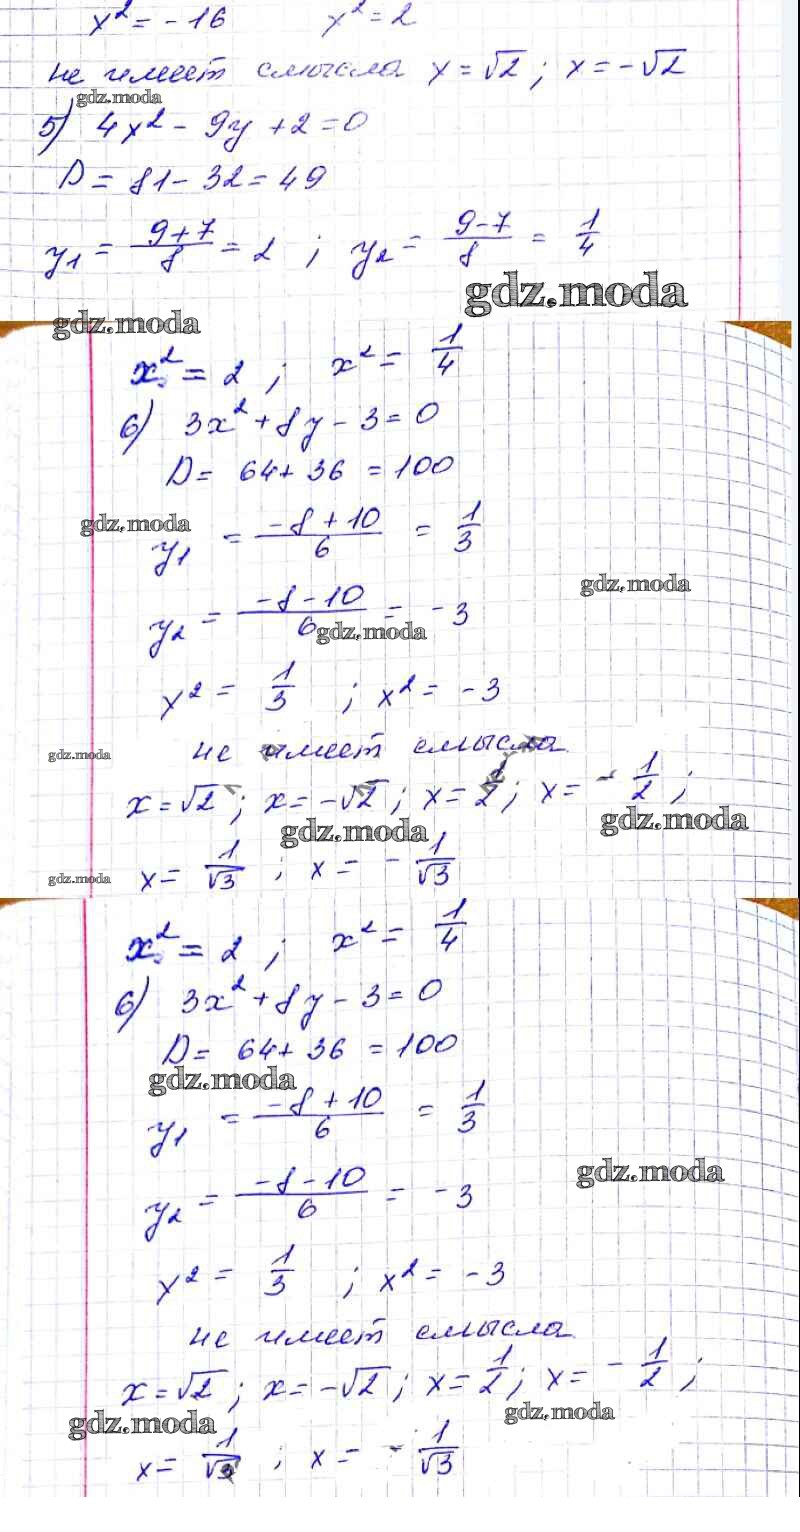 x² = -16 x² = 2
не имеет смысла x = √2 ; x = -√2
gdz.moda
5) 4x² - 9y + 2 = 0
D = 81 - 32 = 49
y₁ = (9+7)/8 = 2 ; y₂ = (9-7)/8 = 1/4
gdz.moda
gdz.moda
x² = 2 ; x² = 1/4
6) 3x² + 8y - 3 = 0
D = 64 + 36 = 100
gdz.moda
y₁ = (-8+10)/6 = 1/3
gdz.moda
y₂ = (-8-10)/6 = -3
gdz.moda
x² = 1/3 ; x² = -3
не имеет смысла
gdz.moda
x = √2 ; x = -√2 ; x = 1/2 ; x = -1/2 ;
gdz.moda gdz.moda
x = 1/√3 ; x = -1/√3
gdz.moda
x² = 2 ; x² = 1/4
6) 3x² + 8y - 3 = 0
D = 64 + 36 = 100
gdz.moda
y₁ = (-8+10)/6 = 1/3
gdz.moda
y₂ = (-8-10)/6 = -3
x² = 1/3 ; x² = -3
не имеет смысла
x = √2 ; x = -√2 ; x = 1/2 ; x = -1/2 ;
gdz.moda gdz.moda
x = 1/√3 ; x = -1/√3